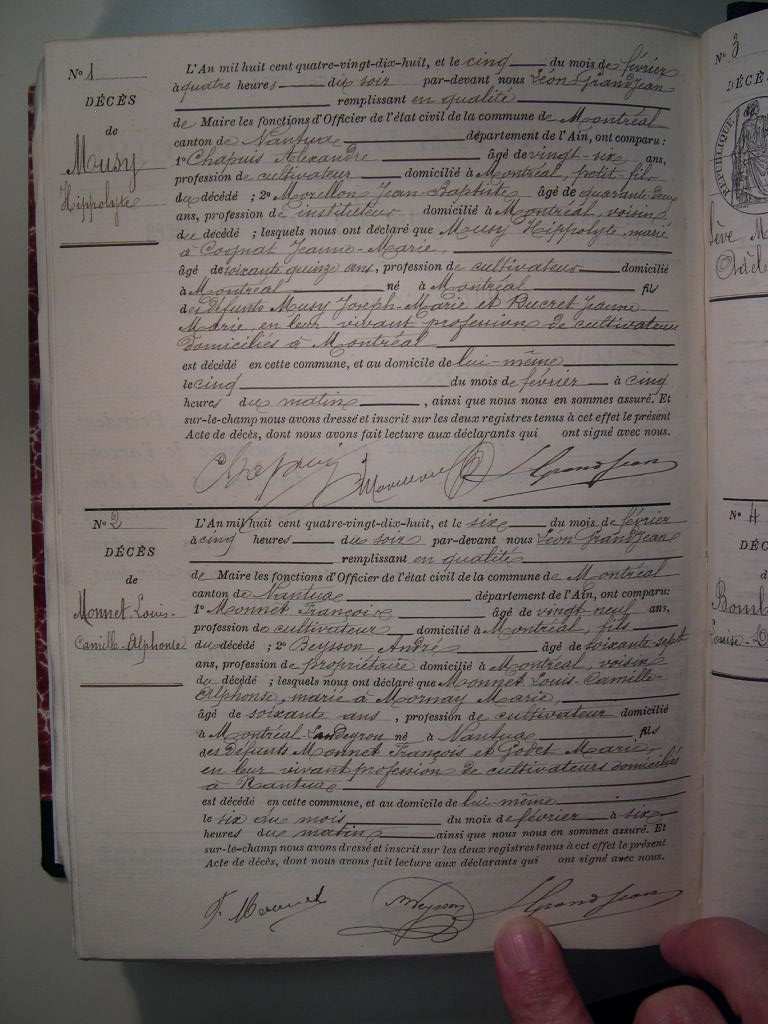 Nº 1
DÉCÈS
de
Musy
Hippolyte
L'An mil huit cent quatre-vingt-dix-huit, et le cinq du mois de février
à quatre heures du soir par-devant nous Léon Grandjean
remplissant en qualité
de Maire les fonctions d'Officier de l'état civil de la commune de Montréal
canton de Nantua département de l'Ain, ont comparu :
1º Chapuis Alexandre âgé de vingt-six ans,
profession de cultivateur domicilié à Montréal, petit-fils
du décédé ; 2º Morellon Jean-Baptiste âgé de quarante deux
ans, profession de instituteur domicilié à Montréal, voisin
du décédé ; lesquels nous ont déclaré que Musy Hippolyte, marié
à Cognat Jeanne-Marie
âgé de soixante quinze ans, profession de cultivateur domicilié
à Montréal né à Montréal fils
des défunts Musy Joseph-Marie et Ducret Jeanne
Marie, en leur vivant profession de cultivateurs
domiciliés à Montréal
est décédé en cette commune, et au domicile de lui-même
le cinq du mois de février à cinq
heures du matin, ainsi que nous nous en sommes assuré. Et
sur-le-champ nous avons dressé et inscrit sur les deux registres tenus à cet effet le présent
Acte de décès, dont nous avons fait lecture aux déclarants qui ont signé avec nous.
Chapuis Morellon L Grandjean
Nº 2
DÉCÈS
de
Monnet Louis-
Camille-Alphonse
L'An mil huit cent quatre-vingt-dix-huit, et le six du mois de février
à cinq heures du soir par-devant nous Léon Grandjean
remplissant en qualité
de Maire les fonctions d'Officier de l'état civil de la commune de Montréal
canton de Nantua département de l'Ain, ont comparu:
1º Monnet François âgé de vingt-neuf ans,
profession de cultivateur domicilié à Montréal, fils
du décédé ; 2º Beysson André âgé de soixante-sept
ans, profession de propriétaire domicilié à Montréal, voisin
du décédé ; lesquels nous ont déclaré que Monnet Louis-Camille-
Alphonse, marié à Mornay Marie
âgé de soixante ans, profession de cultivateur domicilié
à Montréal né à Nantua fils
des défunts Monnet François et Godet Marie,
en leur vivant profession de cultivateurs domiciliés
à Nantua
est décédé en cette commune, et au domicile de lui-même
le six du mois du mois de février à six
heures du matin ainsi que nous nous en sommes assuré. Et
sur-le-champ nous avons dressé et inscrit sur les deux registres tenus à cet effet le présent
Acte de décès, dont nous avons fait lecture aux déclarants qui ont signé avec nous.
F. Monnet Beysson L Grandjean
Nº 3
DÉCÈ
RÉPUBLIQUE
Nº 4
DÉC
d
Bomb